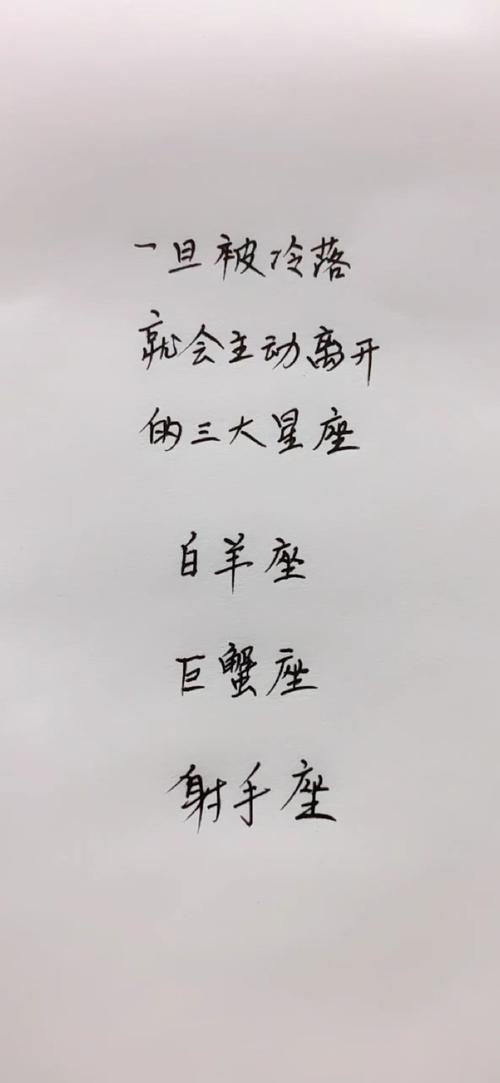 一旦被冷落
就会主动离开
的三大星座
白羊座
巨蟹座
射手座